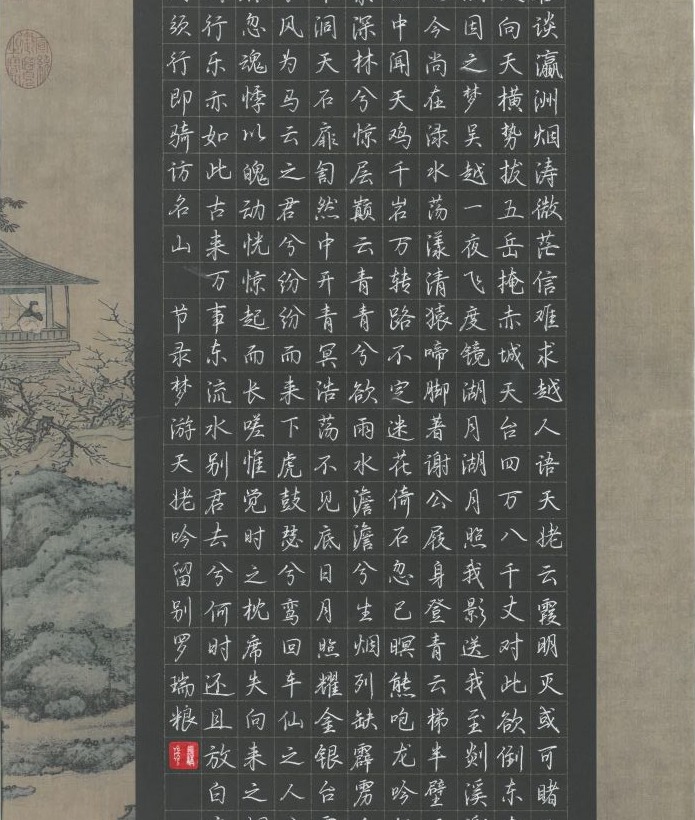 谈瀛洲烟涛微茫信难求越人语天姥云霞明灭或可睹
向天横势拔五岳掩赤城天台四万八千丈对此欲倒东
因之梦吴越一夜飞度镜湖月湖月照我影送我至剡溪
今尚在渌水荡漾清猿啼脚著谢公屐身登青云梯半壁
中闻天鸡千岩万转路不定迷花倚石忽已暝熊咆龙吟
深林兮惊层巅云青青兮欲雨水澹澹兮生烟列缺霹雳
洞天石扉訇然中开青冥浩荡不见底日月照耀金银台
风为马云之君兮纷纷而来下虎鼓瑟兮鸾回车仙之人
忽魂悸以魄动恍惊起而长嗟惟觉时之枕席失向来之
行乐亦如此古来万事东流水别君去兮何时还且放白
须行即骑访名山 节录梦游天姥吟留别罗瑞粮